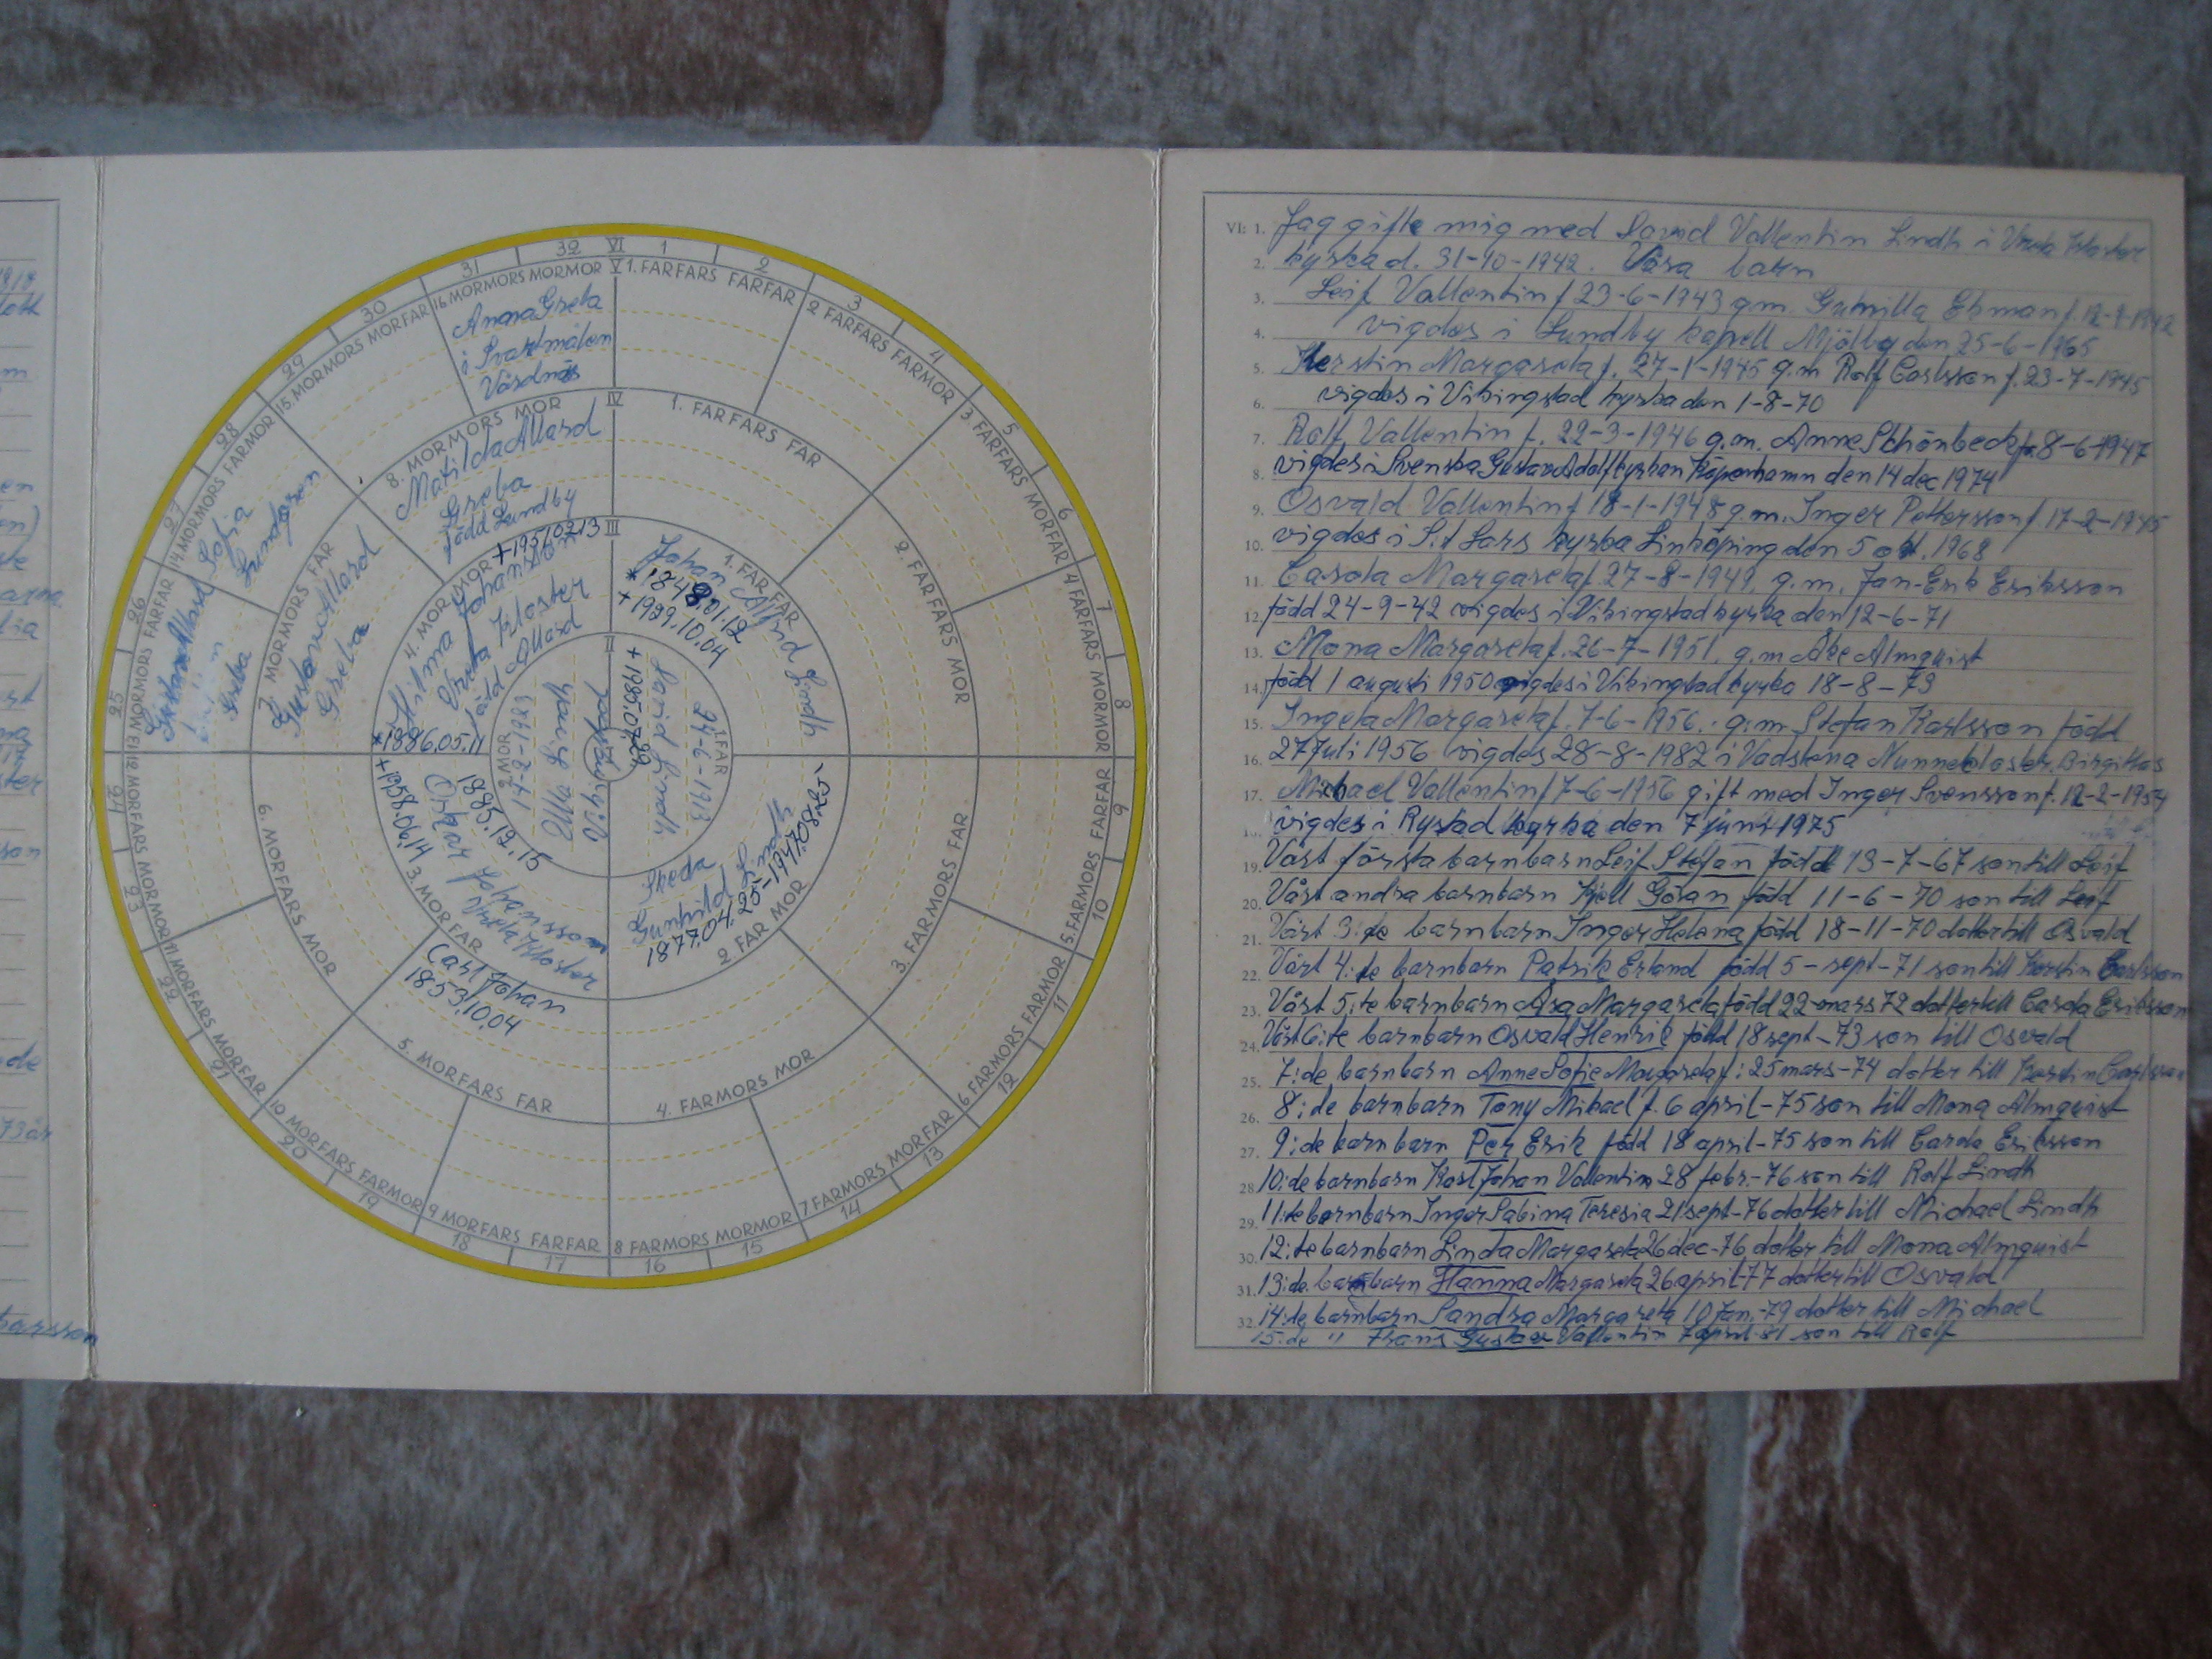 1918
m
en
on)
st
ter
son
de
73 år
VI
1
2
3
4
5
6
7
8
9
10
11
12
13
14
15
16
17
18
19
20
21
22
23
24
25
26
27
28
29
30
31
32
V
1. FARFARS FARFAR
2 FARFARS FARMOR
3 FARFARS MORFAR
4 FARFARS MORMOR
5. FARMORS FARFAR
6 FARMORS FARMOR
7. FARMORS MORFAR
8 FARMORS MORMOR
9 MORFARS FARFAR
10 MORFARS FARMOR
11. MORFARS MORFAR
12 MORFARS MORMOR
13 MORMORS FARFAR
14. MORMORS FARMOR
15. MORMORS MORFAR
16 MORMORS MORMOR
Anna Greta
i Svartmålen
Vårdnäs
Gustav Allard Sofia
Greba
IV
1. FARFARS FAR
2. FARFARS MOR
3. FARMORS FAR
4. FARMORS MOR
5. MORFARS FAR
Carl Johan
1853.10.04
6. MORFARS MOR
7. MORMORS FAR
Gustav Allard
Greba
8. MORMORS MOR
Matilda Allard
Greba
född Lundby
III
1. FARFAR
Johan Alfrid Lindh
* 1848.01.12
+ 1929.10.04
2. FARMOR
Skeda
Gunhild
1877.04.25-1947.08.25
3. MORFAR
Oskar Johansson
Vreta Kloster
1885.12.15
+1958.06.14
4. MORMOR
+1951.02.13
Hilma Johansson
Vreta Kloster
född Allard
*1886.05.11
II
1. FAR
David Lindh
24-6-1913
+ 1985.07.29
2 MOR
14-2-1923
Ulla
VI: 1. Jag gifte mig med David Vallentin Lindh i Vreta Kloster
2. kyrka d. 31-10-1942. Våra barn
3. Leif Vallentin f 23-6-1943 g.m. Gunilla Ekman f. 12-9-1942
4. vigdes i Lundby kapell Mjölby den 25-6-1965
5. Kerstin Margareta f. 27-1-1945 g.m Rolf Carlsson f. 23-7-1945
6. vigdes i Vikingstad kyrka den 1-8-70
7. Rolf Vallentin f. 22-3-1946 g.m. Anne Schönbeck f. 8-6-1947
8. vigdes i Svenska Gustav Adolfkyrkan Köpenhamn den 14 dec 1974
9. Osvald Vallentin f 18-1-1948 g.m. Inger Pettersson f. 17-2-1945
10. vigdes i S:t Lars kyrka Linköping den 5 okt. 1968
11. Carola Margareta f. 27-8-1949. g.m. Jan-Erik Eriksson
12. född 24-9-42 vigdes i Vikingstad kyrka den 12-6-71
13. Mona Margareta f. 26-7-1951. g.m Åke Almquist
14. född 1 augusti 1950 vigdes i Vikingstad kyrka 18-8-73
15. Ingela Margareta f. 7-6-1956. g.m. Stefan Karlsson född
16. 27 Juli 1956 vigdes 28-8-1982 i Vadstena Nunnekloster. Birgittas
17. Michael Vallentin f 7-6-1956 gift med Inger Svensson f. 12-2-1954
vigdes i Rystad kyrka den 7 juni 1975
19. Vårt första barnbarn Leif Stefan född 13-7-67 son till Leif
20. Vårt andra barnbarn Kjell Göran född 11-6-70 son till Leif
21. Vårt 3:je barnbarn Inger Helena född 18-11-70 dotter till Osvald
22. Vårt 4:de barnbarn Patrik Erland född 5-sept-71 son till Kerstin Carlsson
23. Vårt 5:te barnbarn Åsa Margareta född 22-mars 72 dotter till Carola Eriksson
24. Vårt 6:te barnbarn Osvald Henric född 18 sept-73 son till Osvald
25. 7:de barnbarn Anne Sofie Margareta f: 25 mars-74 dotter till Kerstin Carlsson
26. 8:de barnbarn Tony Mikael f. 6 april-75 son till Mona Almquist
27. 9:de barnbarn Per Erik född 18 april-75 son till Carola Eriksson
28. 10:de barnbarn Karl Johan Vallentin 28 febr.-76 son till Rolf Lindh
29. 11:te barnbarn Inger Sabina Teresia 21 sept-76 dotter till Michael Lindh
30. 12:te barnbarn Linda Margareta 26 dec-76 dotter till Mona Almquist
31. 13:de. barnbarn Hanna Margareta 26 april-77 dotter till Osvald
32. 14:de barnbarn Sandra Margareta 10 Jan.-79 dotter till Michael
15:de " Frans Gustav Vallentin 7 april-81 son till Rolf